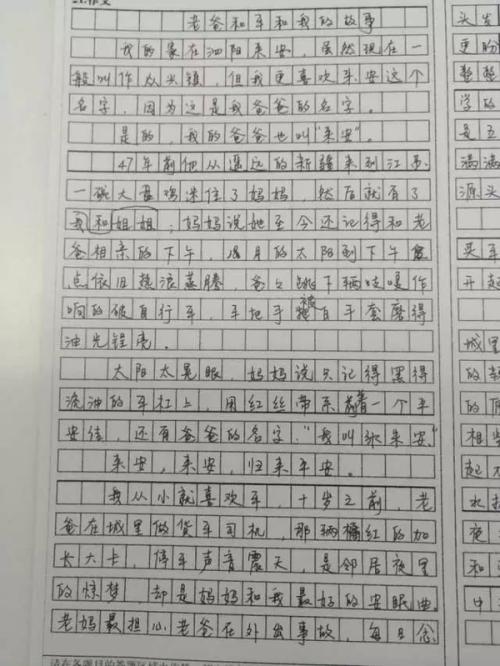 老爸和车和我的故事
我的家在泗阳来安，虽然现在一
般叫作众兴镇，但我更喜欢来安这个
名字，因为这是我爸爸的名字。
是的，我的爸爸也叫“来安”。
47年前他从遥远的新疆来到江苏，
一碗大盘鸡迷住了妈妈，然后就有了
我和姐姐；妈妈说她至今还记得和老
爸相亲的下午，八月的太阳到下午
点依旧热浪蒸腾，爸爸跳下辆吱嘎作
响的破自行车，车把手被手套磨得
油光锃亮。
太阳太晃眼，妈妈说只记得黑得
流油的车杠上，用红丝带系着一个平
安结，还有爸爸的名字：“我叫张来安。”
来安，来安，归来平安。
我从小就喜欢车，十岁之前，老
爸在城里做货车司机，那辆橘红的加
长大卡，停车声音震天，是邻居夜里
的惊梦，却是妈妈和我最好的安眠曲。
老妈最担心老爸在外出事故，每日念
头发
更盼
整整
学的
是五
满满
源头
买车
开起
城里
的
相当
起
水
和
中